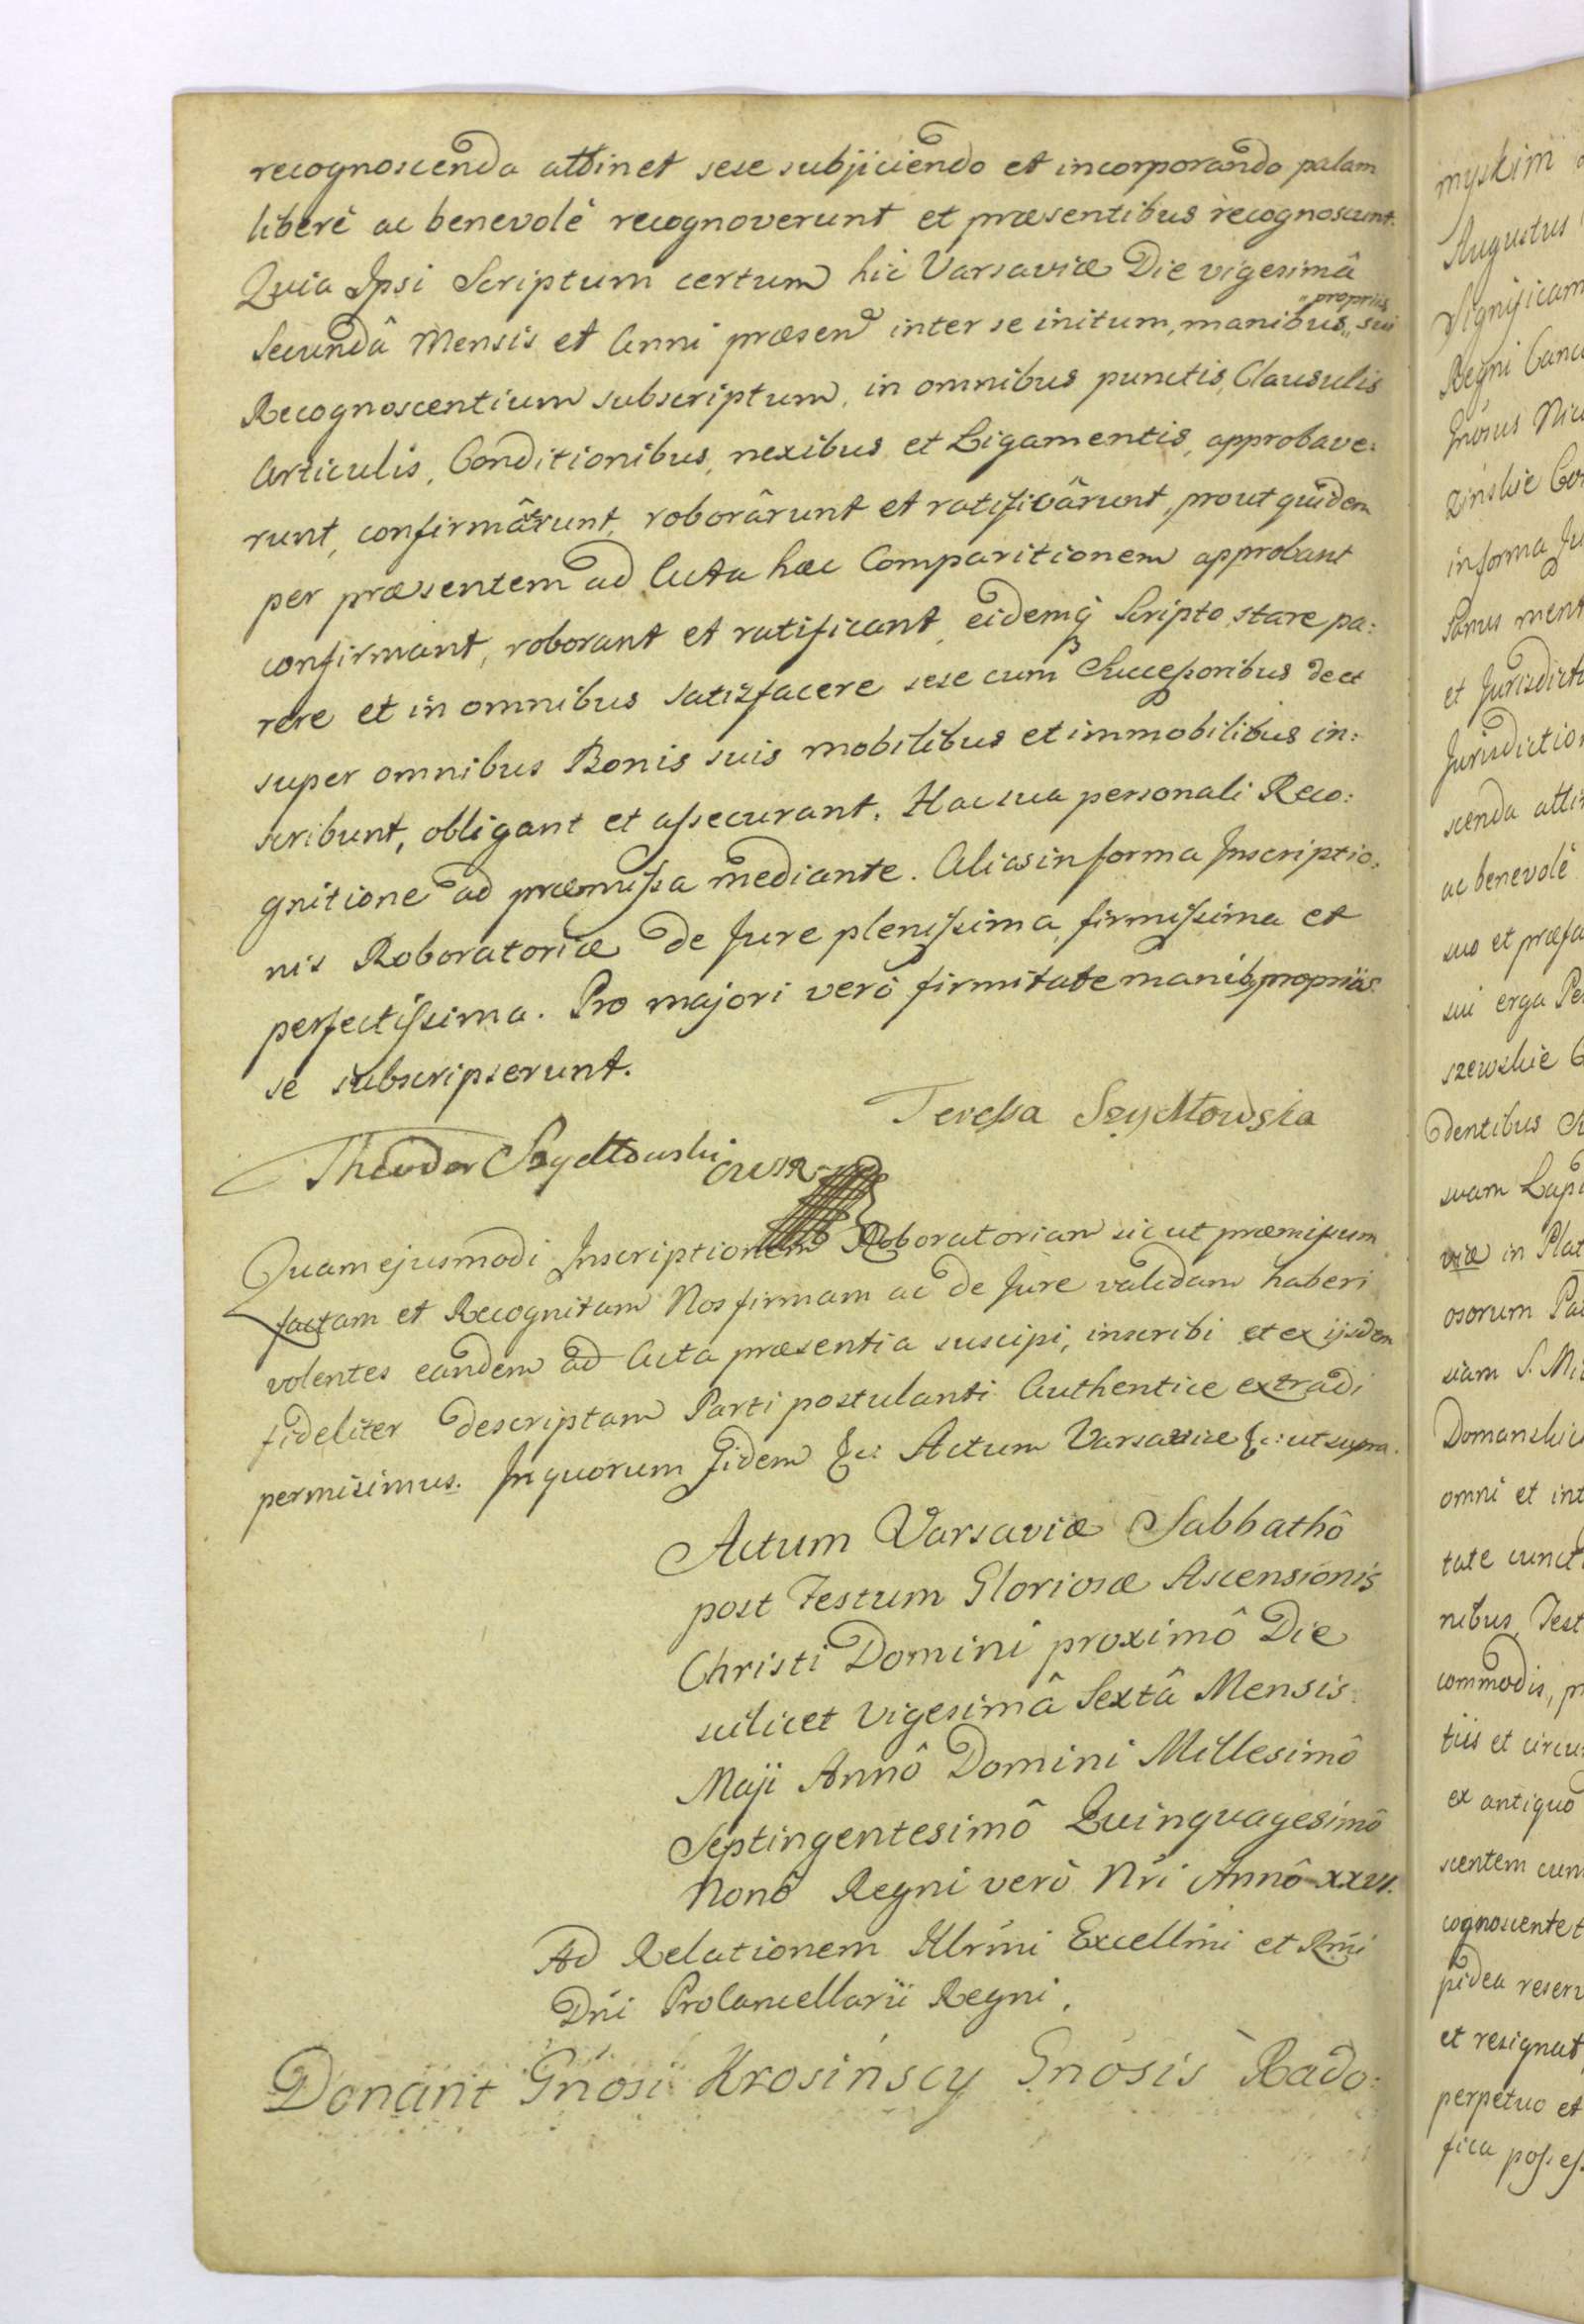 recognoscenda attinet sese subjiciendo et incorporando palam
liberè ac benevolè recognoverunt et præsentibus recognoscunt.
Quia Ipsi Scriptum certum hic Varsaviæ Die vigesimâ
Secundâ Mensis et Anni præsen inter se initum, manibus „propriis„ sui
Recognoscentium subscriptum, in omnibus punctis, Clausulis
Articulis, Conditionibus, nexibus et Ligamentis, approbave:
runt, confirmârunt, roborârunt et ratificârunt, prout quidem
per præsentem ad Acta hæc Comparitionem approbant
confirmant, roborant et ratificant, eidemq̃ Scripto stare pa:
rere et in omnibus satisfacere sese cum Successoribus de et
super omnibus Bonis suis mobilibus et immobilibus in:
scribunt, obligant et assecurant. Hac sua personali Reco:
gnitione ad præmissa mediante. Alias in forma Inscriptio:
nis Roboratoriæ de Jure plenissima, firmissima et
perfectissima. Pro majori verò firmitate manibq propriis
se subscripserunt.
Teressa Szydłowska
Theodor Szydłowski
Quam ejusmodi Inscriptionem Roboratoriam sic ut præmissum
factam et Recognitam Nos firmam ac de Jure validam haberi
volentes eandem ad Acta præsentia suscipi, inscribi et ex ijsdem
fideliter descriptam Parti postulanti Authentice extradi
permisimus. In quorum fidem &c: Actum Varsaviæ &c: ut supra.
Actum Varsaviæ Sabbathô
post Festum Gloriosæ Ascensionis
Christi Domini proximô Die
scilicet Vigesimâ Sextâ Mensis
Maji Annô Domini Millesimô
Septingentesimô Quinquagesimô
Nonô Regni verò Nri Annô XXVI.
Ad Relationem Illrmi Excellmi et Rmi
Dni ProCancellarii Regni.
Donant Gnosi Krosińscy Gnosis Rado:
myskim
Augustus
Significam
Regni Canc
Gnosus Nic
zinskie Con
in forma Ju
Sanus ment
et Jurisdicti
Jurisdiction
scenda atti
ac benevolè
suo et præfa
sui erga Pe
szewskie
dentibus
suam Lapi
viæ in Plat
osorum Pa
siam S. Mi
Domanskic
omni et int
tate cunct
nibus, Test
commodis, p
tiis et circu
ex antiquo
scentem cum
cognoscentet
pidea reserv
et resignat
perpetuo et
fica possess